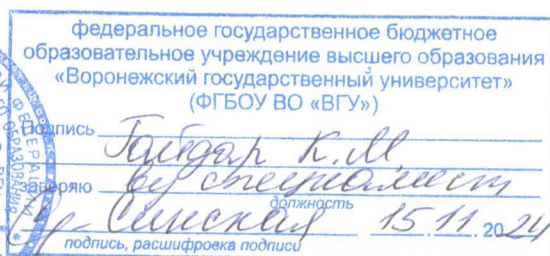 федеральное государственное бюджетное
образовательное учреждение высшего образования
«Воронежский государственный университет»
(ФГБОУ ВО «ВГУ»)
Подпись Гайдар К.М.
заверяю вд специалист
должность
Синская 15.11.2024
подпись, расшифровка подписи